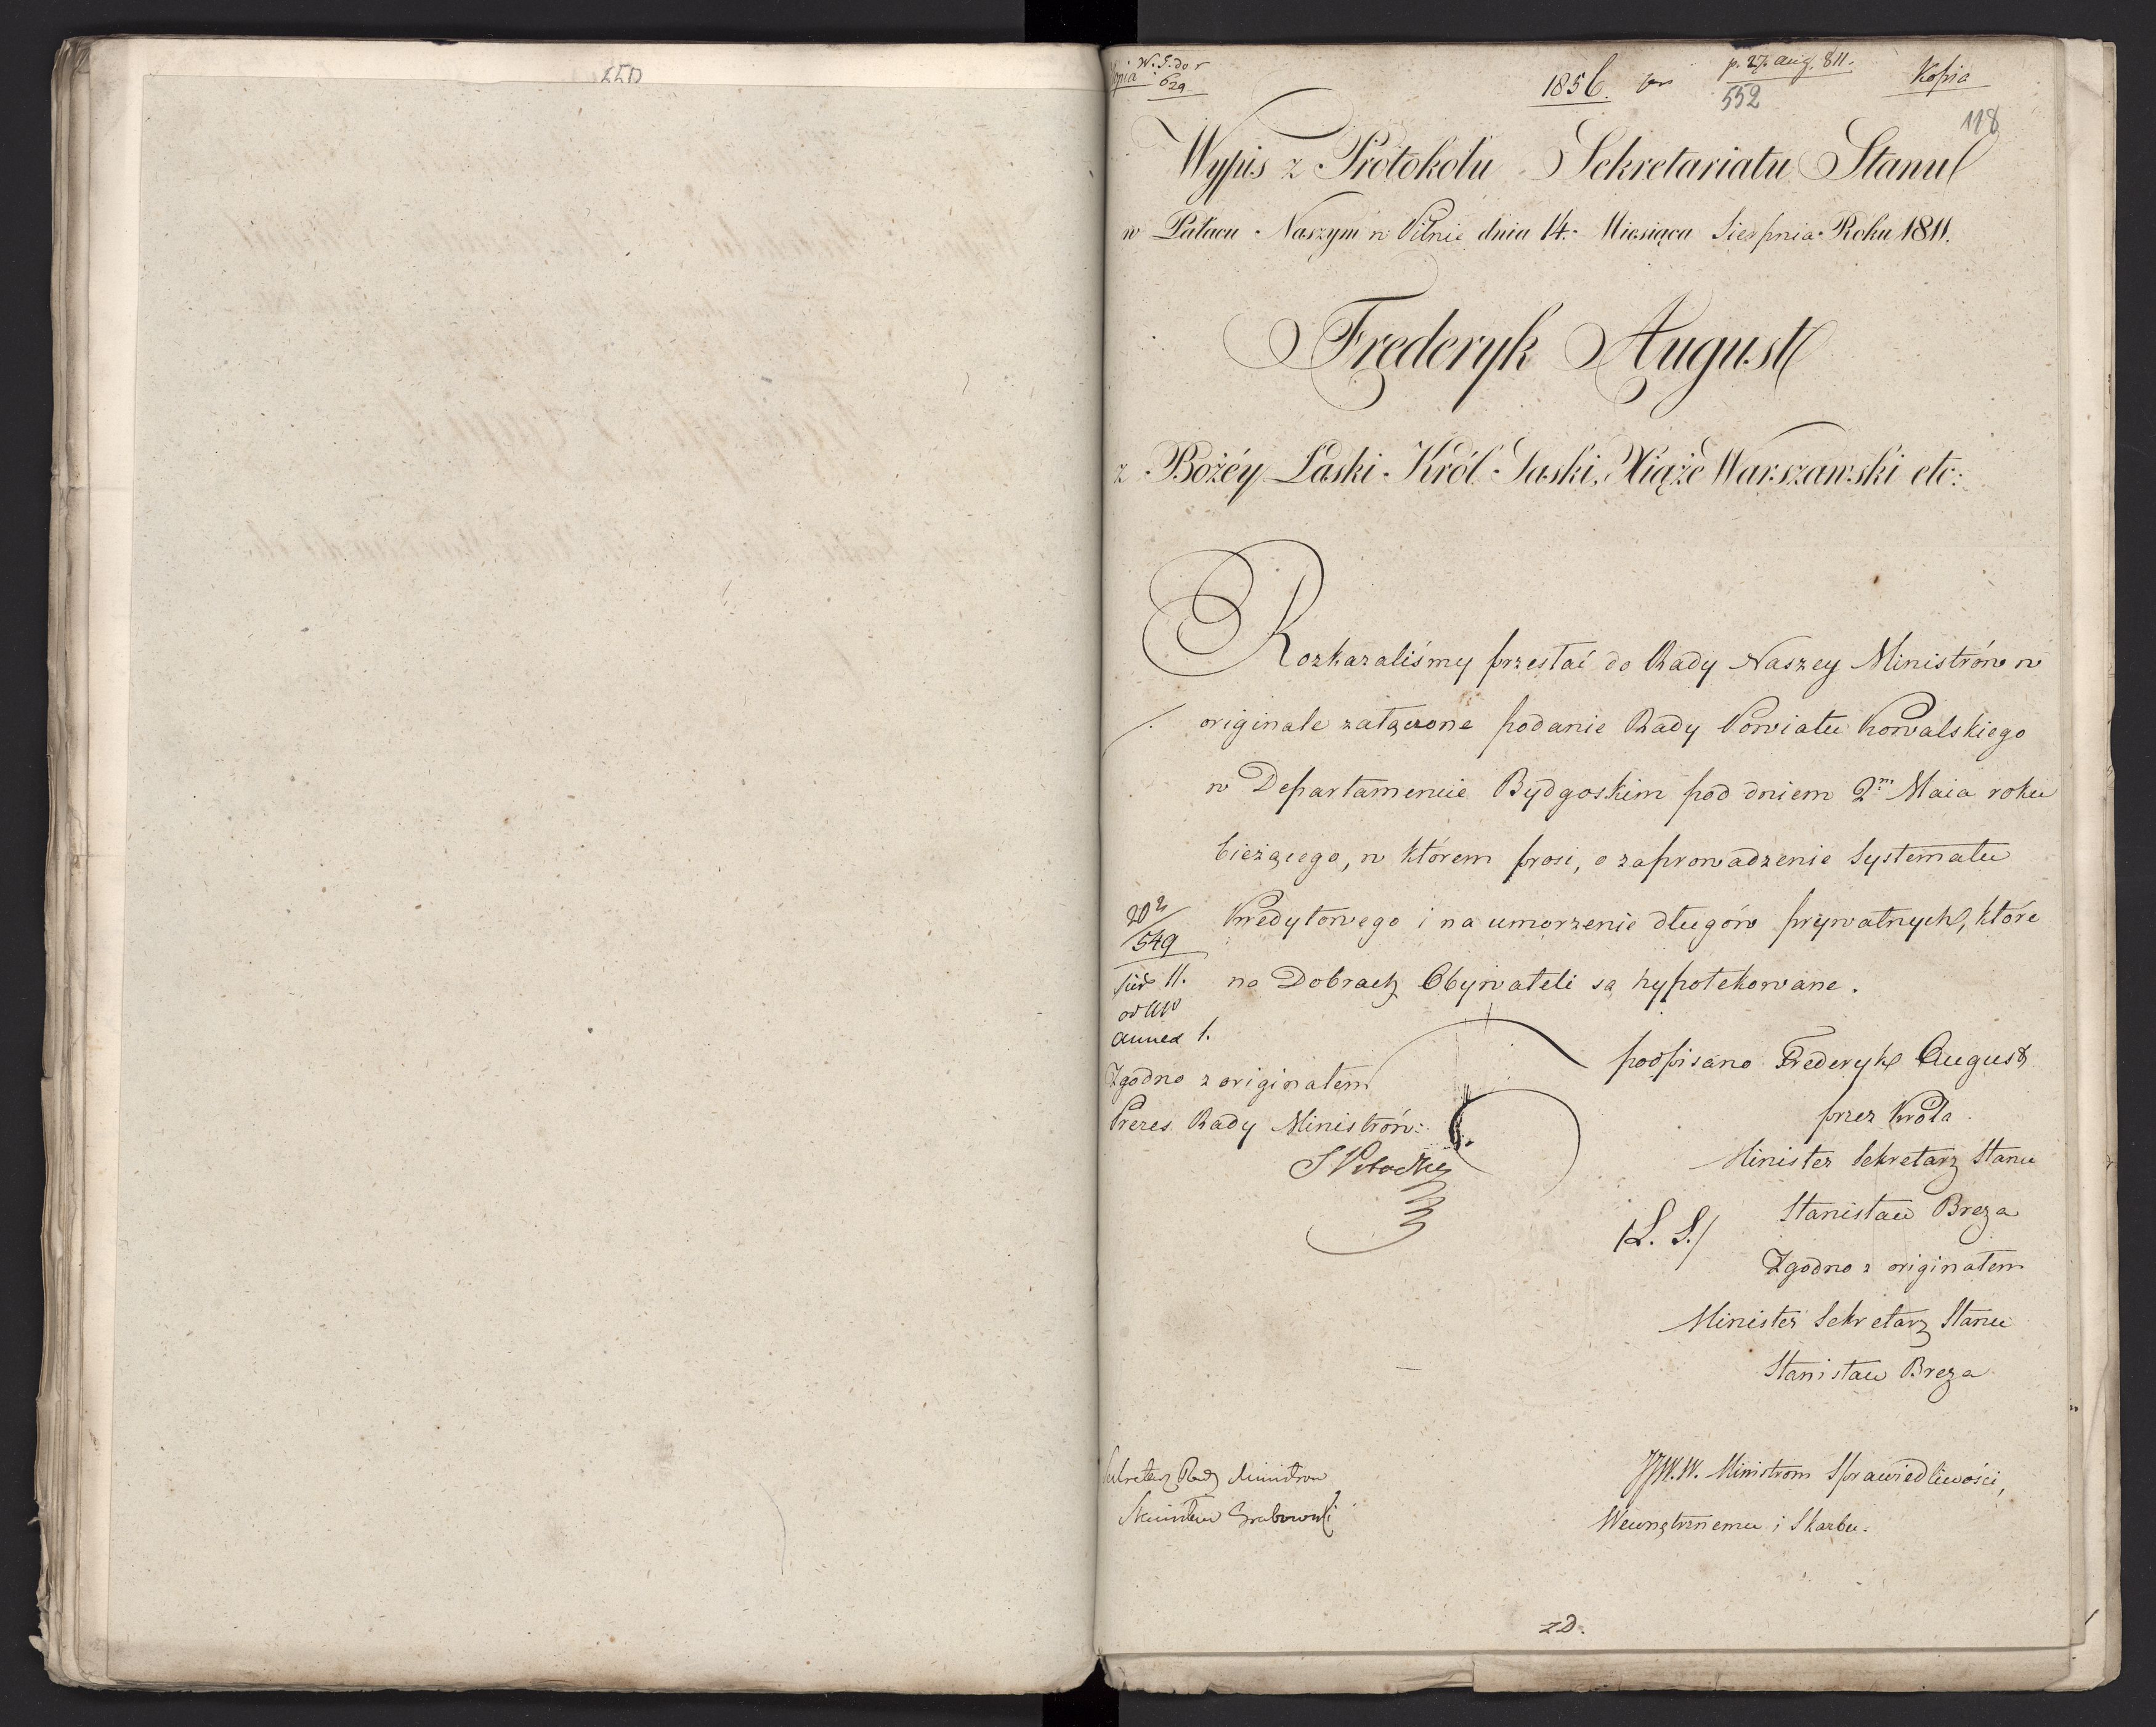 550
W. S. do r
629
1856.
p. 27. aug. 811.
552
Kopia
118
Wypis z Protokołu Sekretariatu Stanu
w Pałacu Naszym w Pilnic dnia 14. Miesiąca Sierpnia Roku 1811.
Frederyk August
z Bożéy Łaski Król Saski, Xiąże Warszawski etc:
Rozkazaliśmy przesłać do Rady Naszey Ministrów w
originale załączone podanie Rady Powiatu Kowalskiego
w Departamencie Bydgoskim pod dniem 2m Maia roku
bieżącego, w którem prosi, o zaprowadzenie Systematu
Kredytowego i na umorzenie długów prywatnych, które
na Dobrach Obywateli są hypotekowane.
549
annex 1.
podpisano Frederyk August
przez Króla
Minister Sekretarz Stanu
(L. S.)
Stanisław Breza
Zgodno z originałem
Minister Sekretarz Stanu
Stanisław Breza
Zgodno z originałem
Prezes Rady Ministrów:
S Potocki
Sekretarz Rady Ministrow
Stanisław Grabowski
JJW.W. Ministrom Sprawiedliwości,
Wewnętrznemu i Skarbu.
ZD.